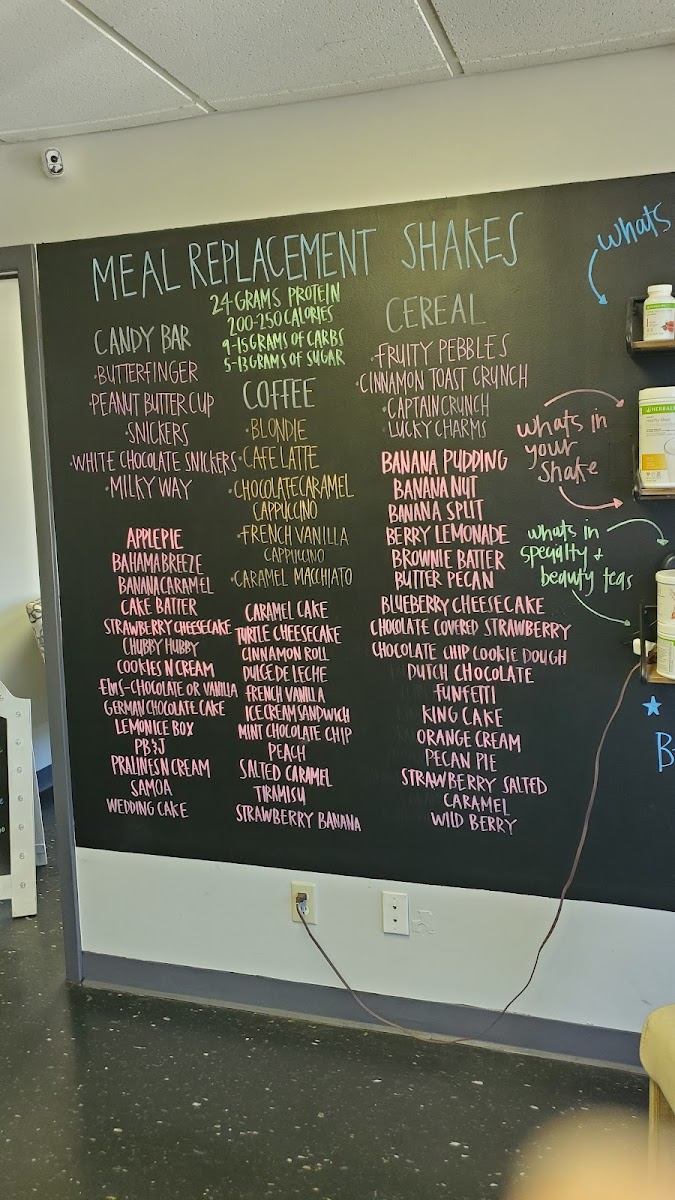 MEAL REPLACEMENT SHAKES
24 GRAMS PROTEIN
200-250 CALORIES
9-15 GRAMS OF CARBS
5-13 GRAMS OF SUGAR
CANDY BAR
·BUTTERFINGER
·PEANUT BUTTER CUP
·SNICKERS
·WHITE CHOCOLATE SNICKERS
·MILKY WAY
APPLE PIE
BAHAMA BREEZE
BANANA CARAMEL
CAKE BATTER
STRAWBERRY CHEESECAKE
CHUBBY HUBBY
COOKIES N CREAM
ELVIS-CHOCOLATE OR VANILLA
GERMAN CHOCOLATE CAKE
LEMON ICE BOX
PB&J
PRALINES N CREAM
SAMOA
WEDDING CAKE
COFFEE
·BLONDIE
·CAFE LATTE
·CHOCOLATE CARAMEL
CAPPUCCINO
·FRENCH VANILLA
CAPPUCCINO
·CARAMEL MACCHIATO
CARAMEL CAKE
TURTLE CHEESECAKE
CINNAMON ROLL
DULCE DE LECHE
FRENCH VANILLA
ICE CREAM SANDWICH
MINT CHOCOLATE CHIP
PEACH
SALTED CARAMEL
TIRAMISU
STRAWBERRY BANANA
CEREAL
·FRUITY PEBBLES
·CINNAMON TOAST CRUNCH
·CAPTAIN CRUNCH
·LUCKY CHARMS
BANANA PUDDING
BANANA NUT
BANANA SPLIT
BERRY LEMONADE
BROWNIE BATTER
BUTTER PECAN
BLUEBERRY CHEESECAKE
CHOCOLATE COVERED STRAWBERRY
CHOCOLATE CHIP COOKIE DOUGH
DUTCH CHOCOLATE
FUNFETTI
KING CAKE
ORANGE CREAM
PECAN PIE
STRAWBERRY SALTED
CARAMEL
WILD BERRY
whats
whats in
your
shake
whats in
specialty +
beauty teas
B